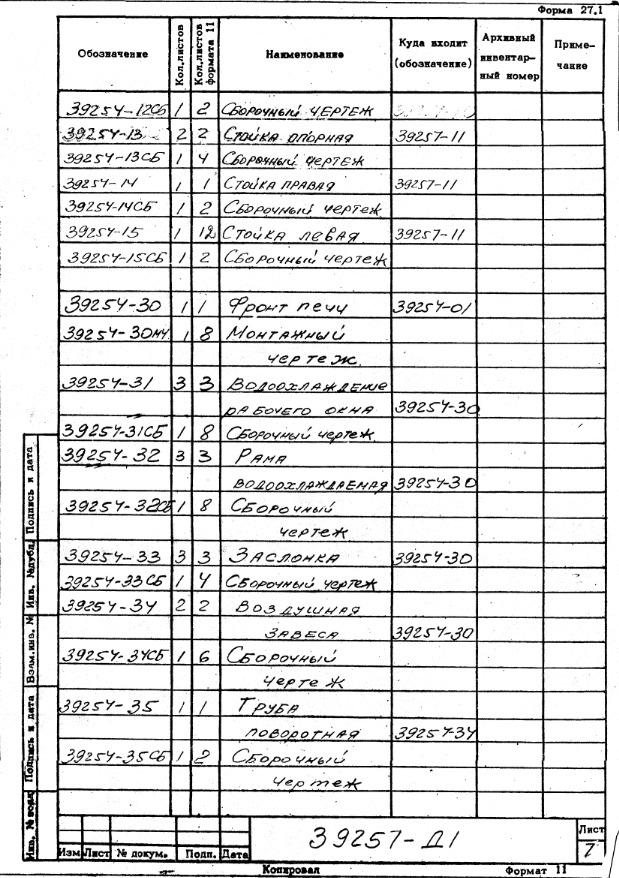 Форма 27.1
Обозначение Кол.листов Кол.листов формата 11 Наименование Куда входит (обозначение) Архивный инвентарный номер Примечание
39254-12СБ 1 2 Сборочный чертеж
39254-13 2 2 Стойка опорная 39257-11
39254-13СБ 1 4 Сборочный чертеж
39254-14 1 1 Стойка правая 39257-11
39254-14СБ 1 2 Сборочный чертеж
39254-15 1 12 Стойка левая 39257-11
39254-15СБ 1 2 Сборочный чертеж
39254-30 1 1 Фронт печи 39254-01
39254-30МЧ 1 8 Монтажный
чертеж
39254-31 3 3 Водоохлаждение
рабочего окна 39254-30
39254-31СБ 1 8 Сборочный чертеж
39254-32 3 3 Рама
водоохлаждаемая 39254-30
39254-32СБ 1 8 Сборочный
чертеж
39254-33 3 3 Заслонка 39254-30
39254-33СБ 1 4 Сборочный чертеж
39254-34 2 2 Воздушная
завеса 39254-30
39254-34СБ 1 6 Сборочный
чертеж
39254-35 1 1 Труба
поворотная 39254-34
39254-35СБ 1 2 Сборочный
чертеж
Инв. № подл Подпись и дата Взам.инв. № Инв. №дубл. Подпись и дата
39257-Д1
Лист
7
Изм Лист № докум. Подп. Дата
Копировал Формат 11